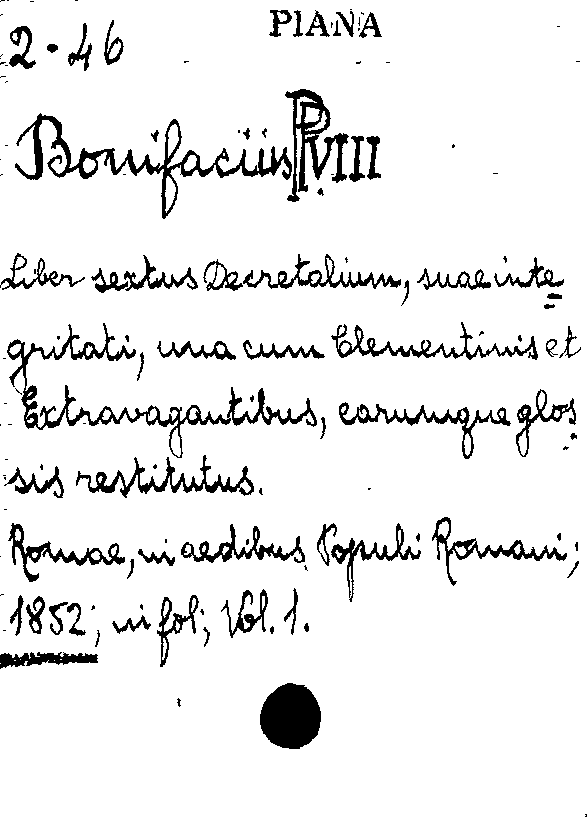 PIANA
2-46
Bonifacius PP. VIII
Liber sextus Decretalium, suae inte=
gritati, una cum Clementinis et
Extravagantibus, earumque glos=
sis restitutus.
Romae, in aedibus Populi Romani;
1852; in fol; Vol. 1.